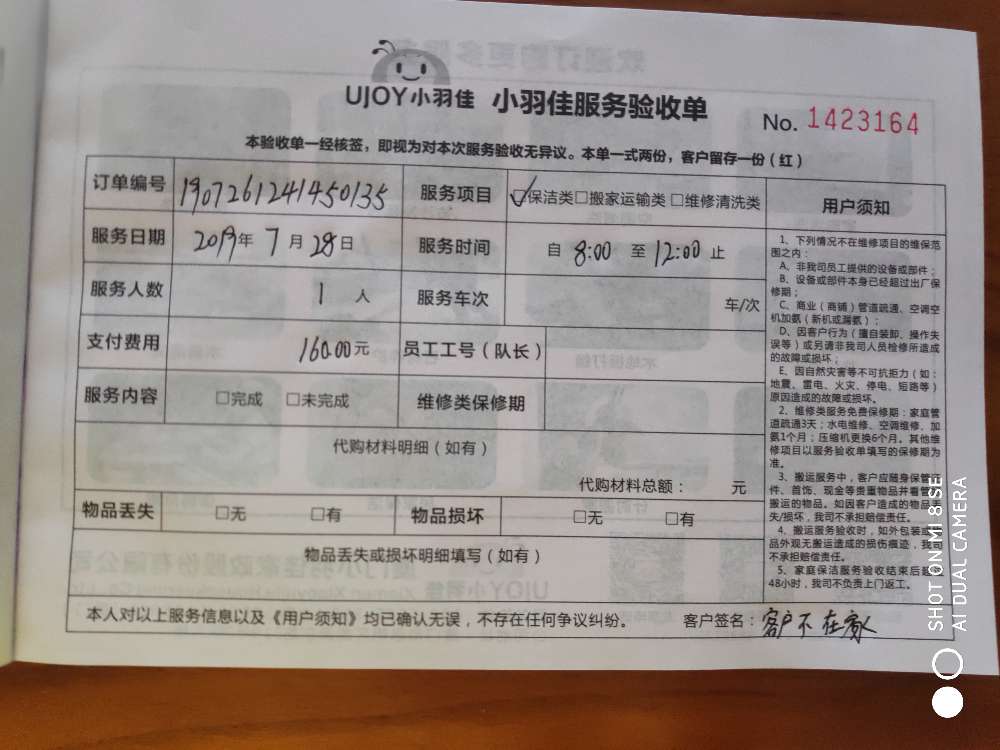 UJOY小羽佳 小羽佳服务验收单
No. 1423164
本验收单一经核签，即视为对本次服务验收无异议。本单一式两份，客户留存一份（红）
订单编号 1907261241450135 服务项目 ☑保洁类□搬家运输类 □维修清洗类
服务日期 2019年 7 月 28 日 服务时间 自 8:00 至 12:00 止
服务人数 1 人 服务车次 车/次
支付费用 160.00元 员工工号（队长）
服务内容 □完成 □未完成 维修类保修期
代购材料明细（如有）
代购材料总额： 元
物品丢失 □无 □有 物品损坏 □无 □有
物品丢失或损坏明细填写（如有）
用户须知
1、下列情况不在维修项目的维保范
围之内：
A、非我司员工提供的设备或部件；
B、设备或部件本身已经超过出厂保
修期；
C、商业（商铺）管道疏通、空调空
机加氨（新机或漏氨）；
D、因客户行为（擅自装卸、操作失
误等）或另请非我司人员检修所造成
的故障或损坏；
E、因自然灾害等不可抗拒力（如：
地震、雷电、火灾、停电、短路等）
原因造成的故障或损坏。
2、维修类服务免费保修期：家庭管
道疏通3天；水电维修、空调维修、加
氨1个月；压缩机更换6个月。其他维
修项目以服务验收单填写的保修期为
准。
3、搬运服务中，客户应随身保管证
件、首饰、现金等贵重物品并看管
搬运的物品。如因客户造成的物品丢
失/损坏，我司不承担赔偿责任。
4、搬运服务验收时，如外包装或
品外观无搬运造成的损伤痕迹，我司
不承担赔偿责任。
5、家庭保洁服务验收结束后超过
48小时，我司不负责上门返工。
本人对以上服务信息以及《用户须知》均已确认无误，不存在任何争议纠纷。 客户签名：客户不在家
SHOT ON MI 8 SE
AI DUAL CAMERA